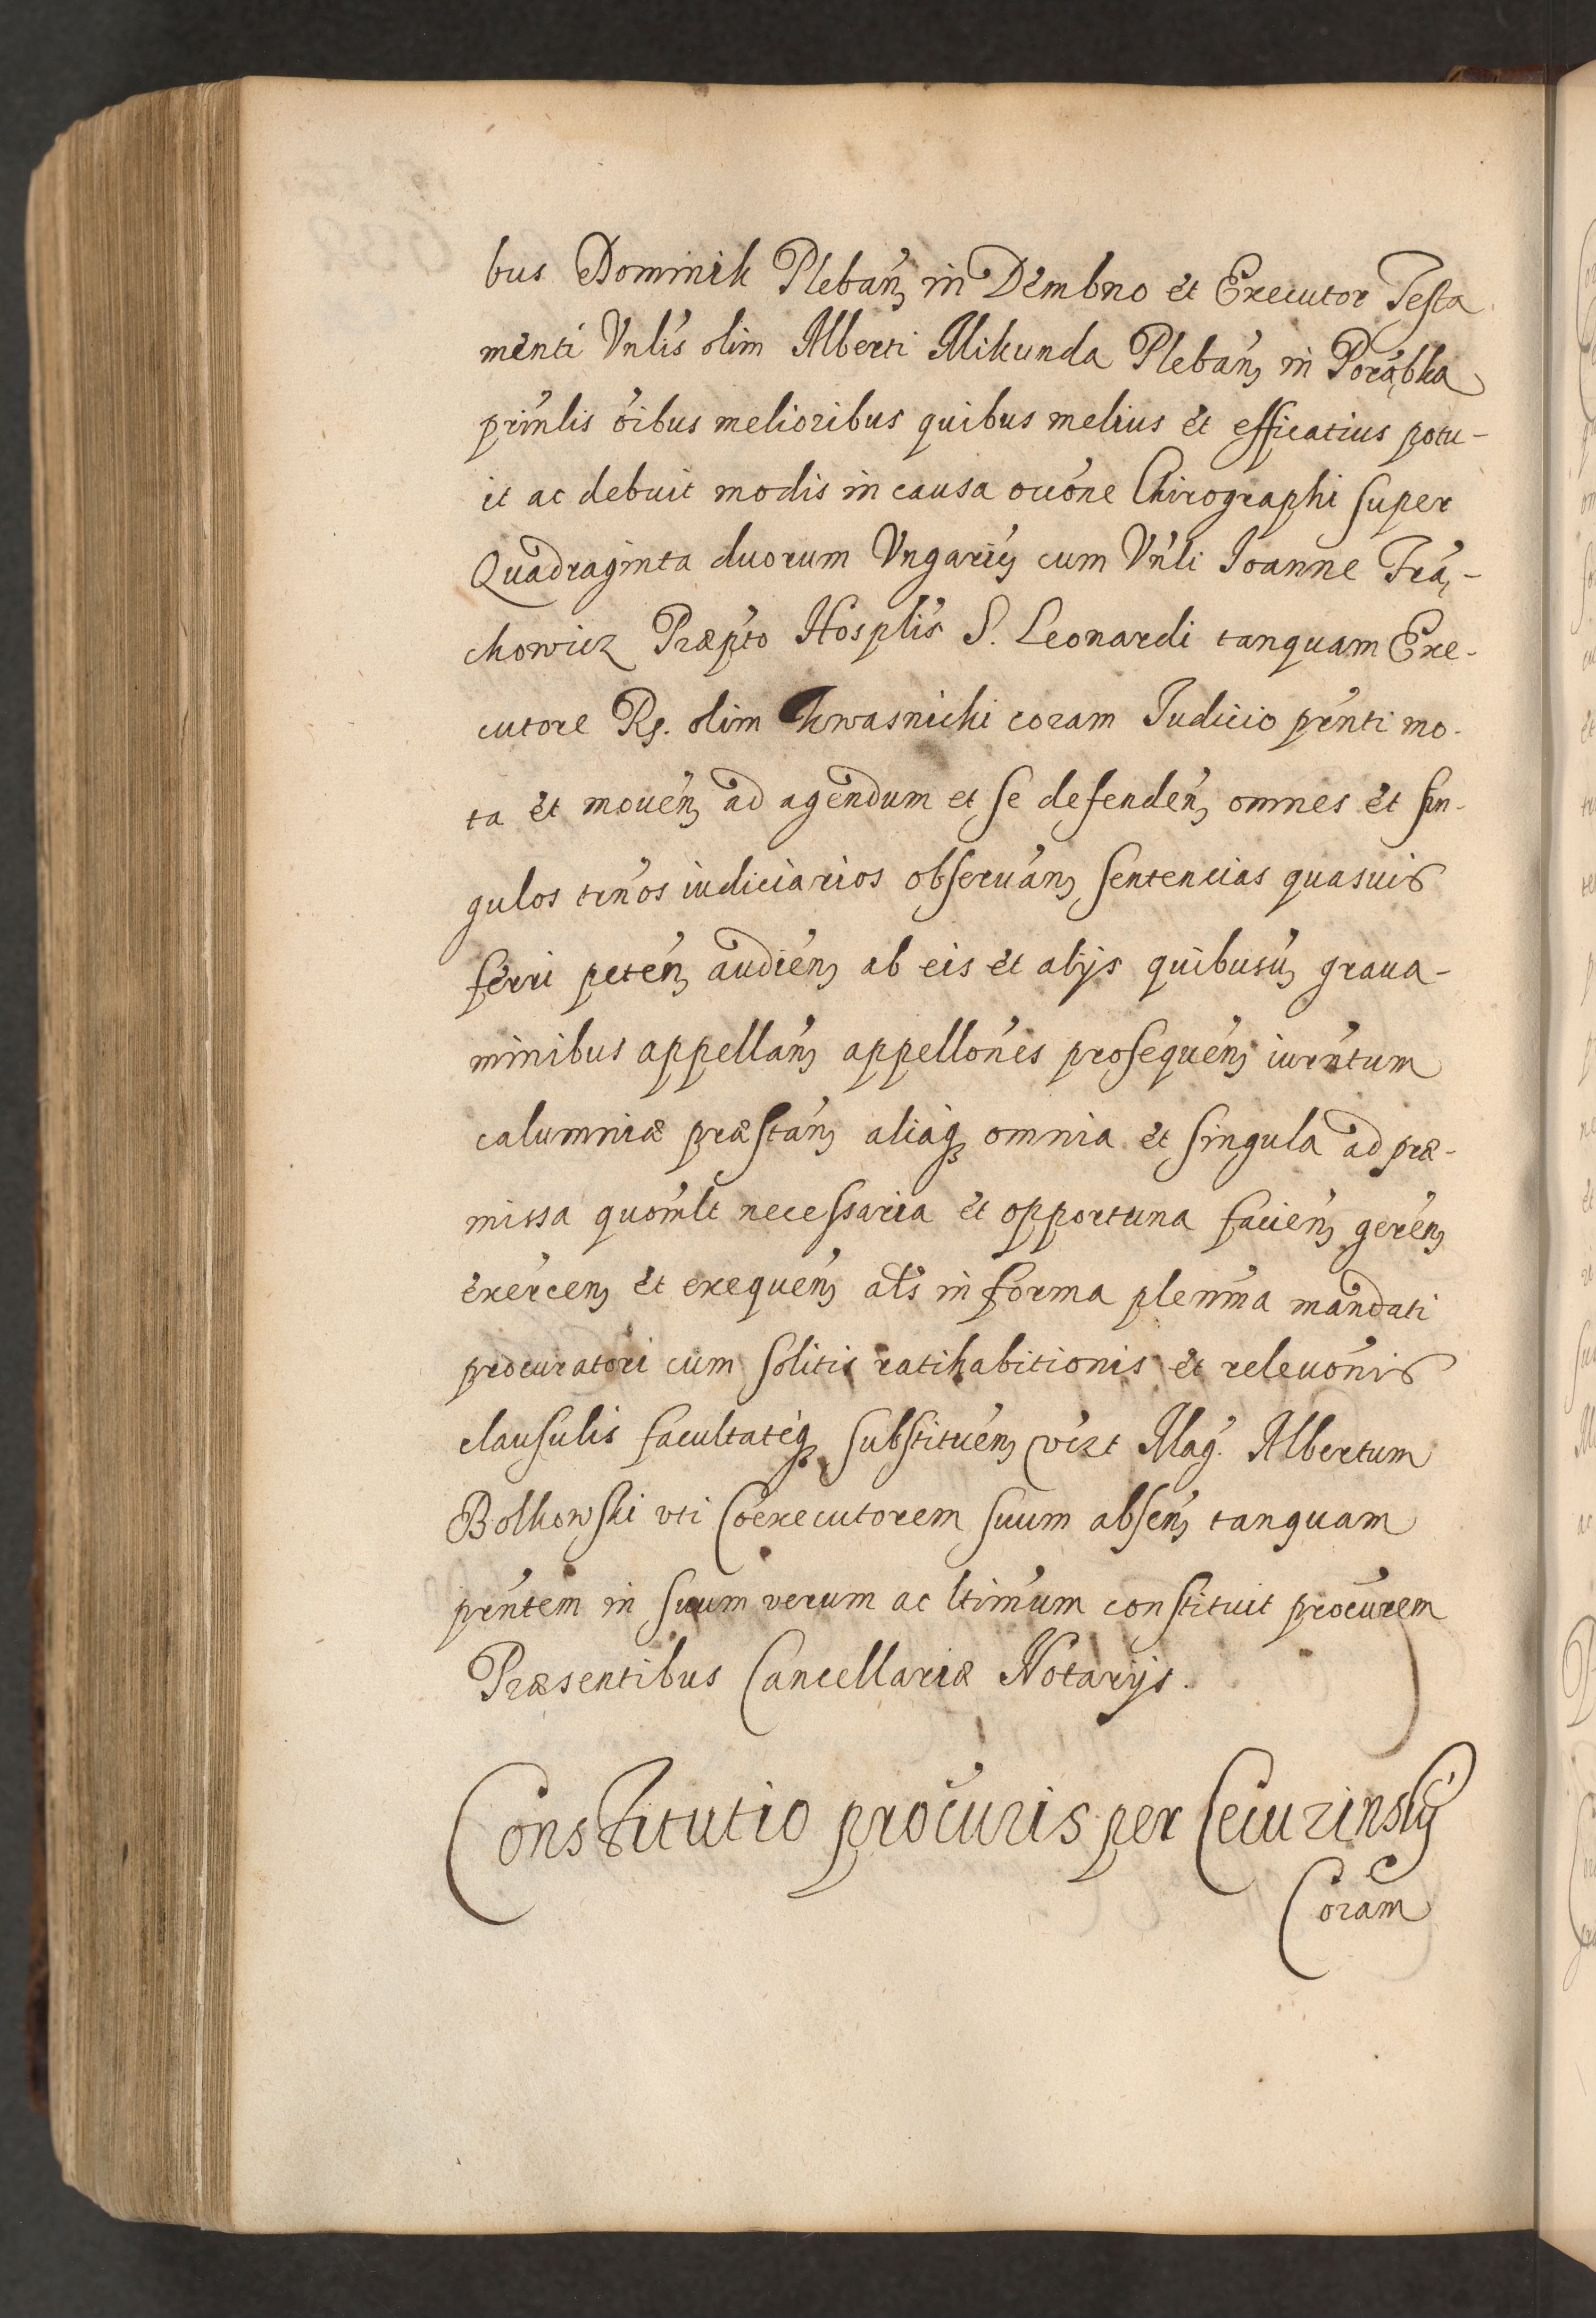 bus Dominik Pleban9 in Dembno et Executor Testa
menti Vnlis olim Alberti Mikunda Pleban9 in Porąbka
prinlis oibus melioribus quibus melius et efficatius potu-
it ac debuit modis in causa occone Chirographi super
Quadraginta duorum Vngarię cum Vnli Ioanne Frą-
ckowicz Præpto Hosplis S. Leonardi tanquam Exe-
cutore Rs. olim Kwasnicki coram Iudicio prnti mo-
ta et mouen9 ad agendum et se defenden9 omnes et sin-
gulos trnos iudiciarios obseruan9 sentencias quasuis
ferri peten9 audien9 ab eis et alijs quibusu9 graua-
minibus appellan9 appellones prosequen9 iurntum
calumniæ præstan9 aliaq3 omnia et singula ad præ-
missa quomlt necessaria et opportuna facien9 geren9
exercen9 et exequen9 als in forma plenma mandati
procuratori cum solitis ratihabitionis et releuonis
clausulis facultateq3 substituen9 vizt Mag. Albertum
Bolkowski vti Coexecutorem suum absen9 tanquam
prntem in suum verum ac ltimum constituit procurem
Præsentibus Cancellariæ Notarijs.
Constitutio procuris per Ceiurinskij
Coram